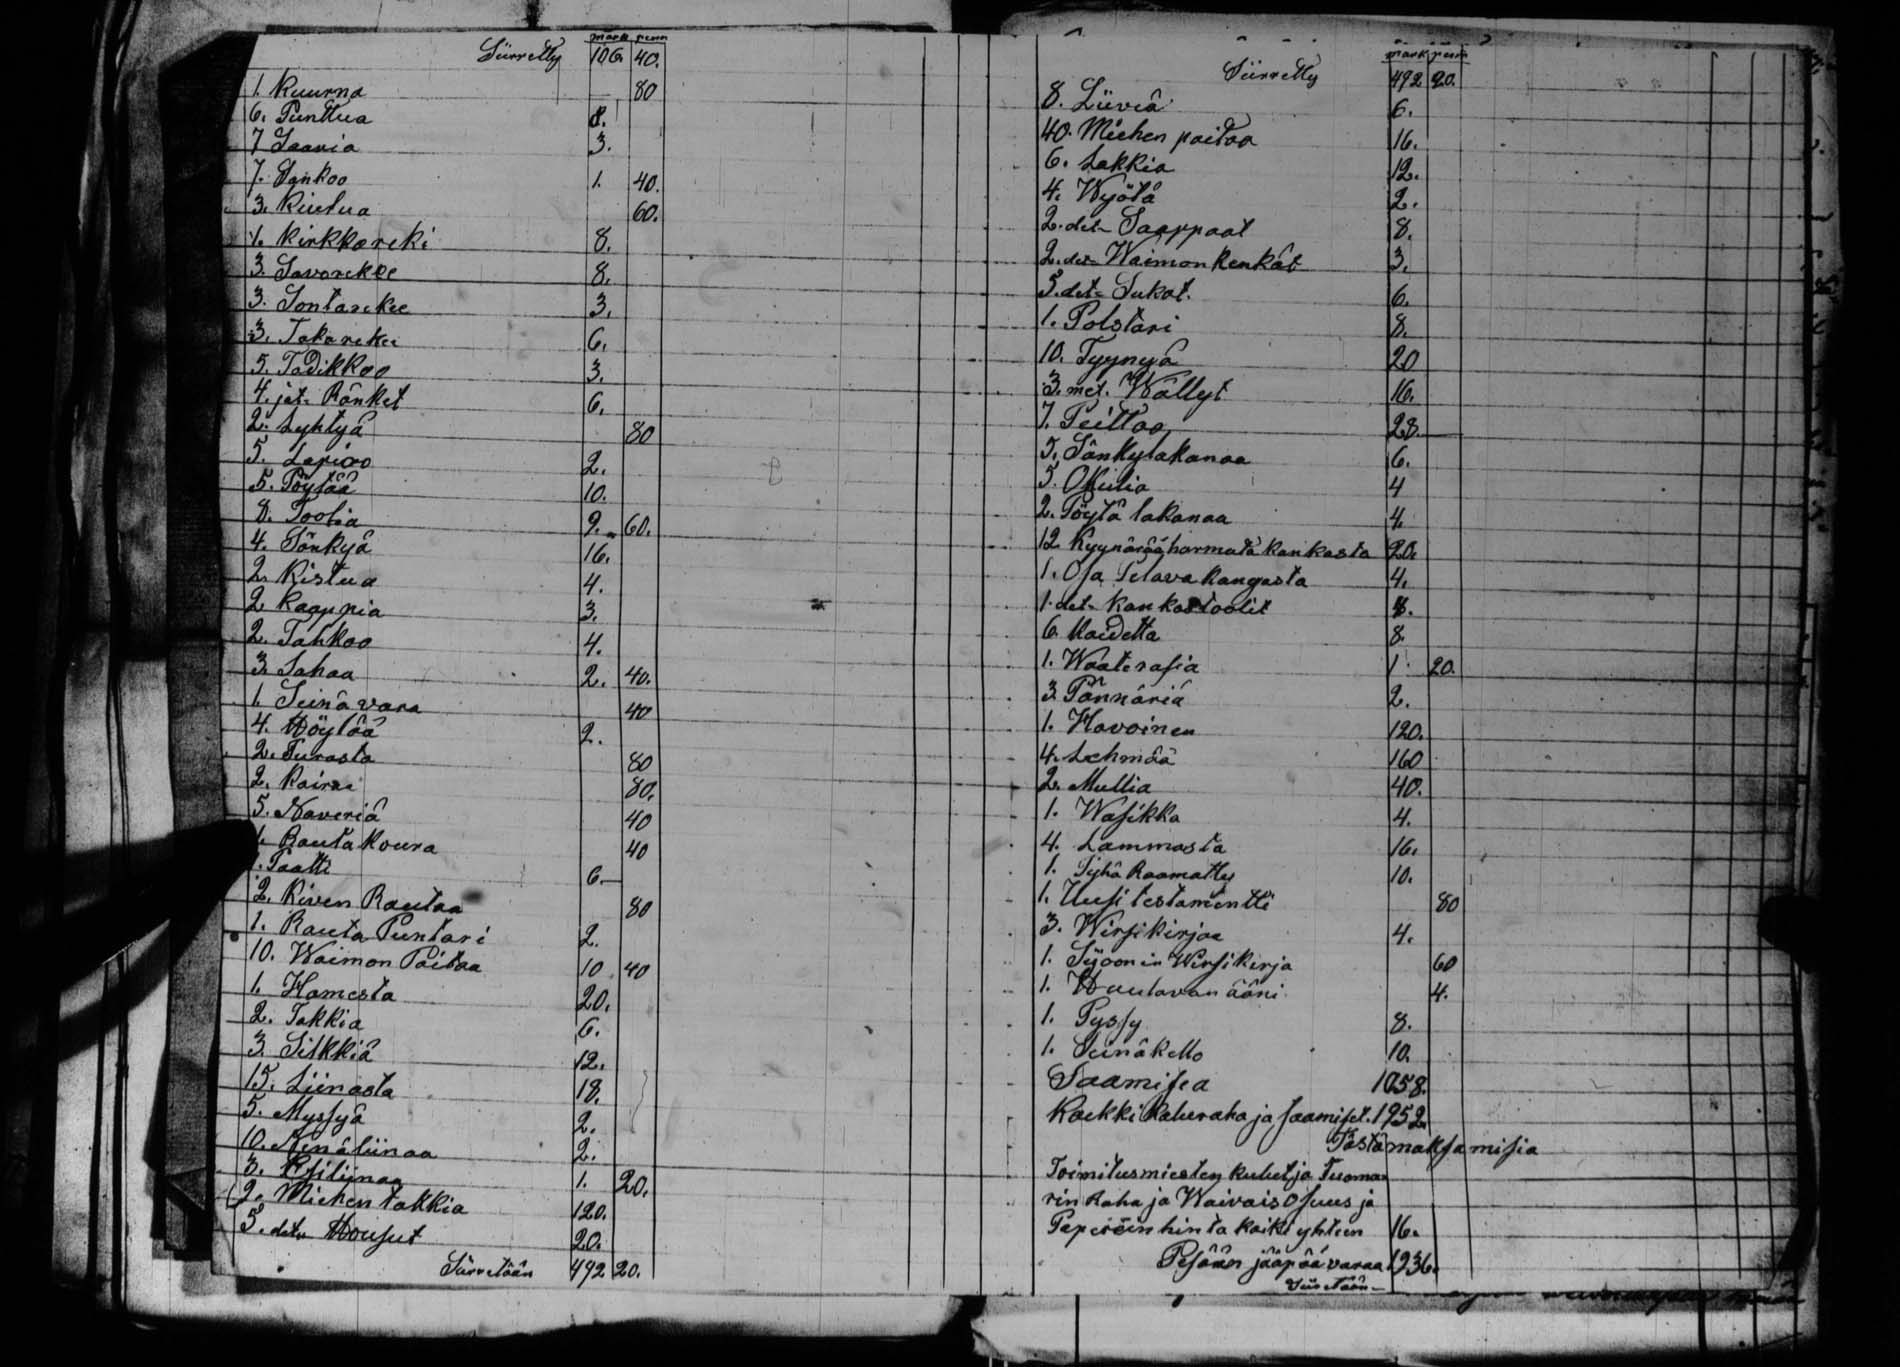 mark penn
Siirretty 106. 40.
1. Kuurna 80
6. Punttua 8.
7 Saavia 3.
7. Sankoo 1. 40.
3. Kiulua 60.
1. Kirkkoreki 8.
3. Savorekee 8.
3. Sontarekee 3.
3. Takarekee 6.
5. Tadikkoo 3.
4. jät- Ränket 6.
2. Lyhtyä 80
5. Lapioo 2.
5. Pöytää 10.
8. Toolia 9. 60.
4. Sänkyä 16.
2. Kistua 4.
2 Kaappia 3.
2. Tahkoo 4.
3. Sahaa 2. 40.
1. Seinävara 40
4. Höylää 2.
2. Purasta 80
2. Kairaa 80.
5. Naveriä 40
1. Rautakoura 40
1. Paatti 6.
2. Kiven Rautaa 80
1. Rauta Puntari 2.
10. Waimon Paitaa 10 40
1. Hamesta 20.
2. Takkia 6.
3. Silkkiä 12.
15. Liinasta 18.
5. Myssyä 2.
10. Nenäliinaa 2.
3. 1. 20.
2. Miehen takkia 120.
5. det- Housut 20.
Siirretään 492 20.
mark penn
Siirretty 492 20.
8. Liiviä 6.
40. Miehen paitaa 16.
6. Lakkia 12.
4. Wyötä 2.
2. det- Saappaat 8.
2. det- Waimonkenkät 3.
5. det- Sukat. 6.
1. Polstari 8.
10. Tyynyä 20
3. met. Wällyt 16.
7. Peittoo 28.
5. Sänkylakanaa 6.
5. 4
2. Pöytä lakanaa 4.
12 Kyynärää harmata kankasta 20.
1. Osa Pelavakangasta 4.
1. det- Kankastoolit 8.
6. Kaidetta 8.
1. Waaterasia 1. 20.
3. Pännäriä 2.
1. Havoinen 120.
4. Lehmää 160
2. Mullia 40.
1. Wasikka 4.
4. Lammasta 16.
1. Pyhä Raamattu 10.
1. Uusi testamentti 80
3. Wirsikirjaa 4.
1. Sijoonin Wirsikirja 60
1. Huutavan ääni 4.
1. Pyssy 8.
1. Seinäkello 10.
Saamisea 1058.
Kaekki Kaluraha ja saamiset. 1952.
Tästä maksamisia
Toimitusmiesten kulut ja Tuoma=
rin Raha ja Waivaisosuus ja
Paperein hinta kaiki yhteen 16.
Pesään jääpää varaa 1936.
Siiretään-